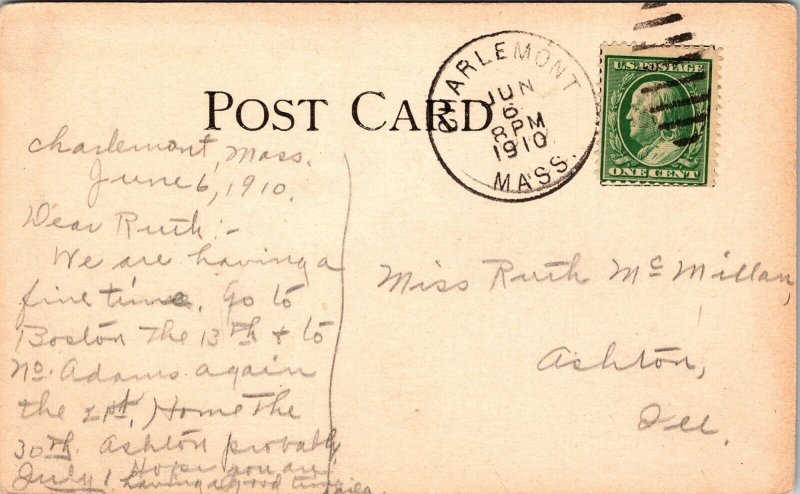 POST CARD
CHARLEMONT
JUN
6
8 PM
1910
MASS.
U.S. POSTAGE
ONE CENT
Charlemont, Mass.
June 6, 1910.
Dear Ruth:-
We are having a
fine time. Go to
Boston the 13th & to
No. Adams again
the 21st, Home the
30th. Ashton probably
July 1. Hope you are
having a good time
Miss Ruth McMillan,
Ashton,
Ill.